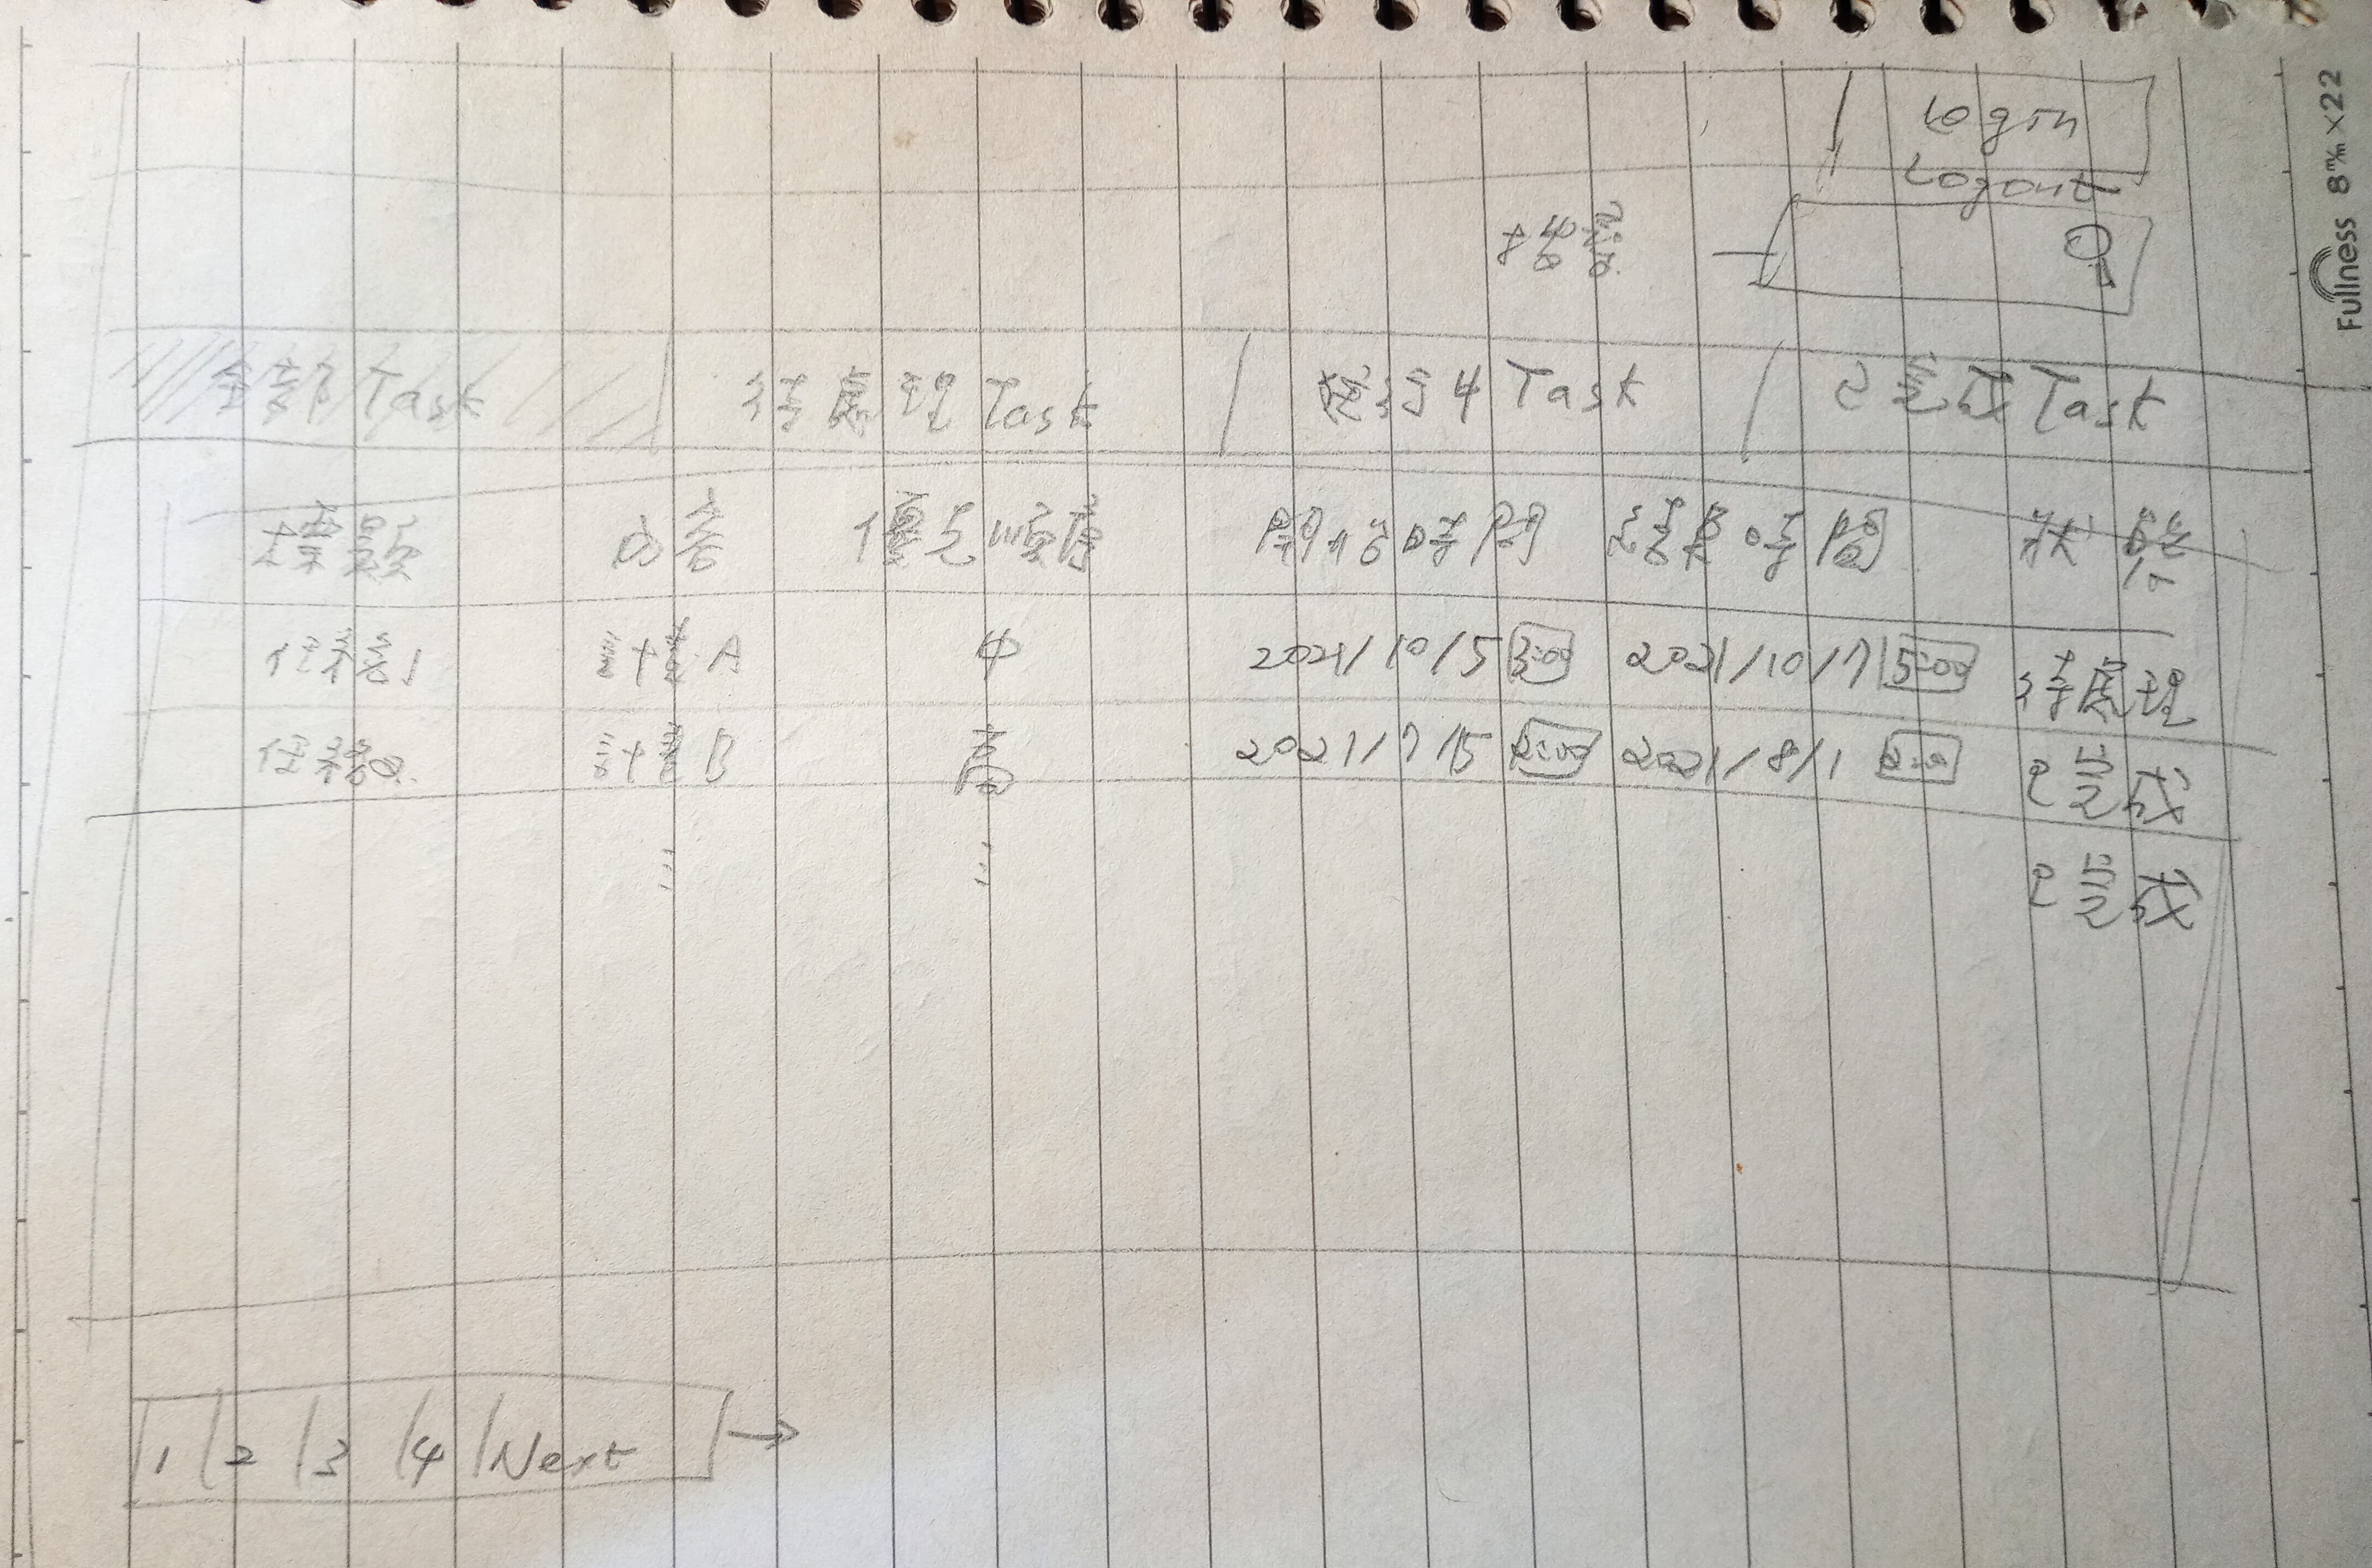 Login
Logout
搜尋
全部Task 待處理Task 進行中Task 已完成Task
標題 內容 優先順序 開始時間 結束時間 狀態
任務1 計畫A 中 2021/10/5 3:00 2021/10/7 5:00 待處理
任務2 計畫B 高 2021/7/15 2:00 2021/8/1 已完成
已完成
1 2 3 4 Next →
Fullness 8m/m×22